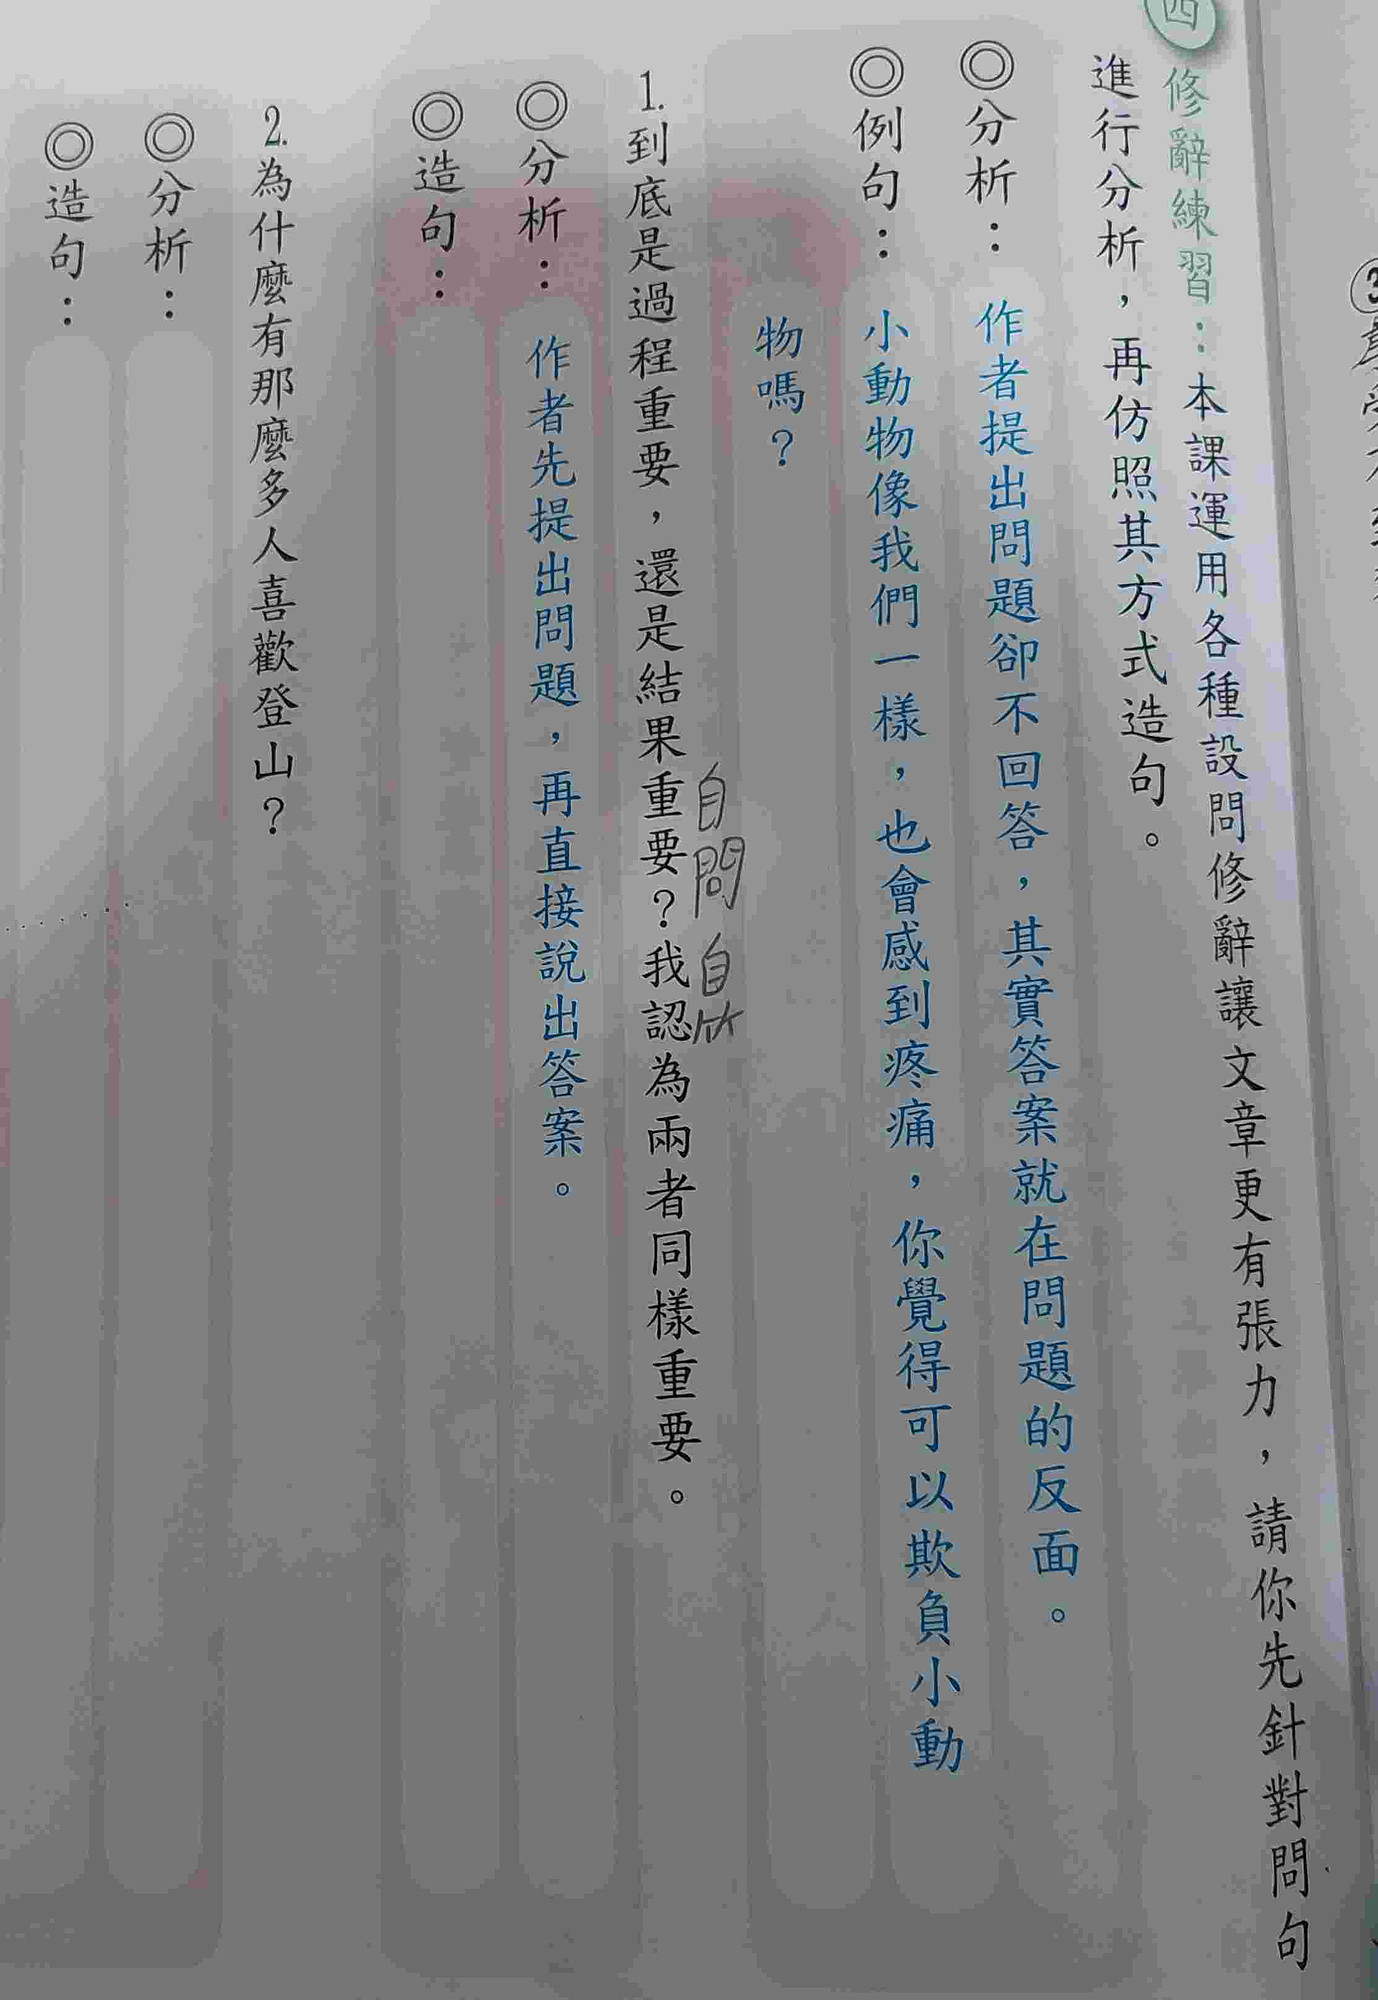 四
修辭練習：本課運用各種設問修辭讓文章更有張力，請你先針對問句
進行分析，再仿照其方式造句。
◎分析：作者提出問題卻不回答，其實答案就在問題的反面。
◎例句：小動物像我們一樣，也會感到疼痛，你覺得可以欺負小動
物嗎？
自問自
1.到底是過程重要，還是結果重要？我認為兩者同樣重要。
◎分析：作者先提出問題，再直接說出答案。
◎造句：
2.為什麼有那麼多人喜歡登山？
◎分析：
◎造句：